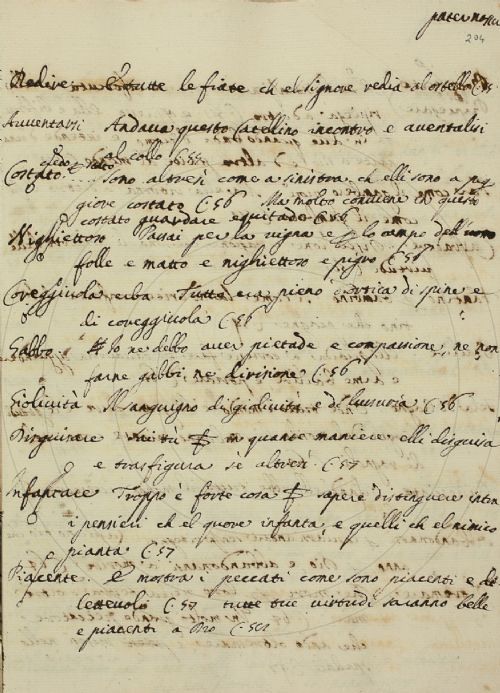 pater nostro
204
Redire E tutte le fiate ch el signore redia al ostello C. 55
Avventarsi Andava questo Catellino incontro e aventalisi
al collo C. 55
Costato
sono altresì come a sinistra ch elli sono a pig
giore costato C. 56 Ma molto conviene in questo
costato guardare equitade C. 56
Nighiettoso Passai per la vigna e p lo campo dell uomo
folle e matto e nighiettoso e pigro C. 56
Coveggiuola erba Tutto era pieno d ortica di spine e
di coveggiuola C. 56
Gabbo Io ne debbo aver pietade e compassione, ne non
farne gabbi, ne dirisione C. 56
Giolività Il sanguigno di giolività e di lussuria C. 56
Disguisare in quante maniere elli disguisa
e trasfigura se altresì C. 57
Infantare Troppo è forte cosa sapere distinguere intra
i pensieri ch el quore infanta, e quelli ch el nimico
pianta C. 57
Piacente E mostra i peccati come sono piacenti e di
lettevoli C. 57 tutte tue virtudi saranno belle
e piacenti a Dio C. 58